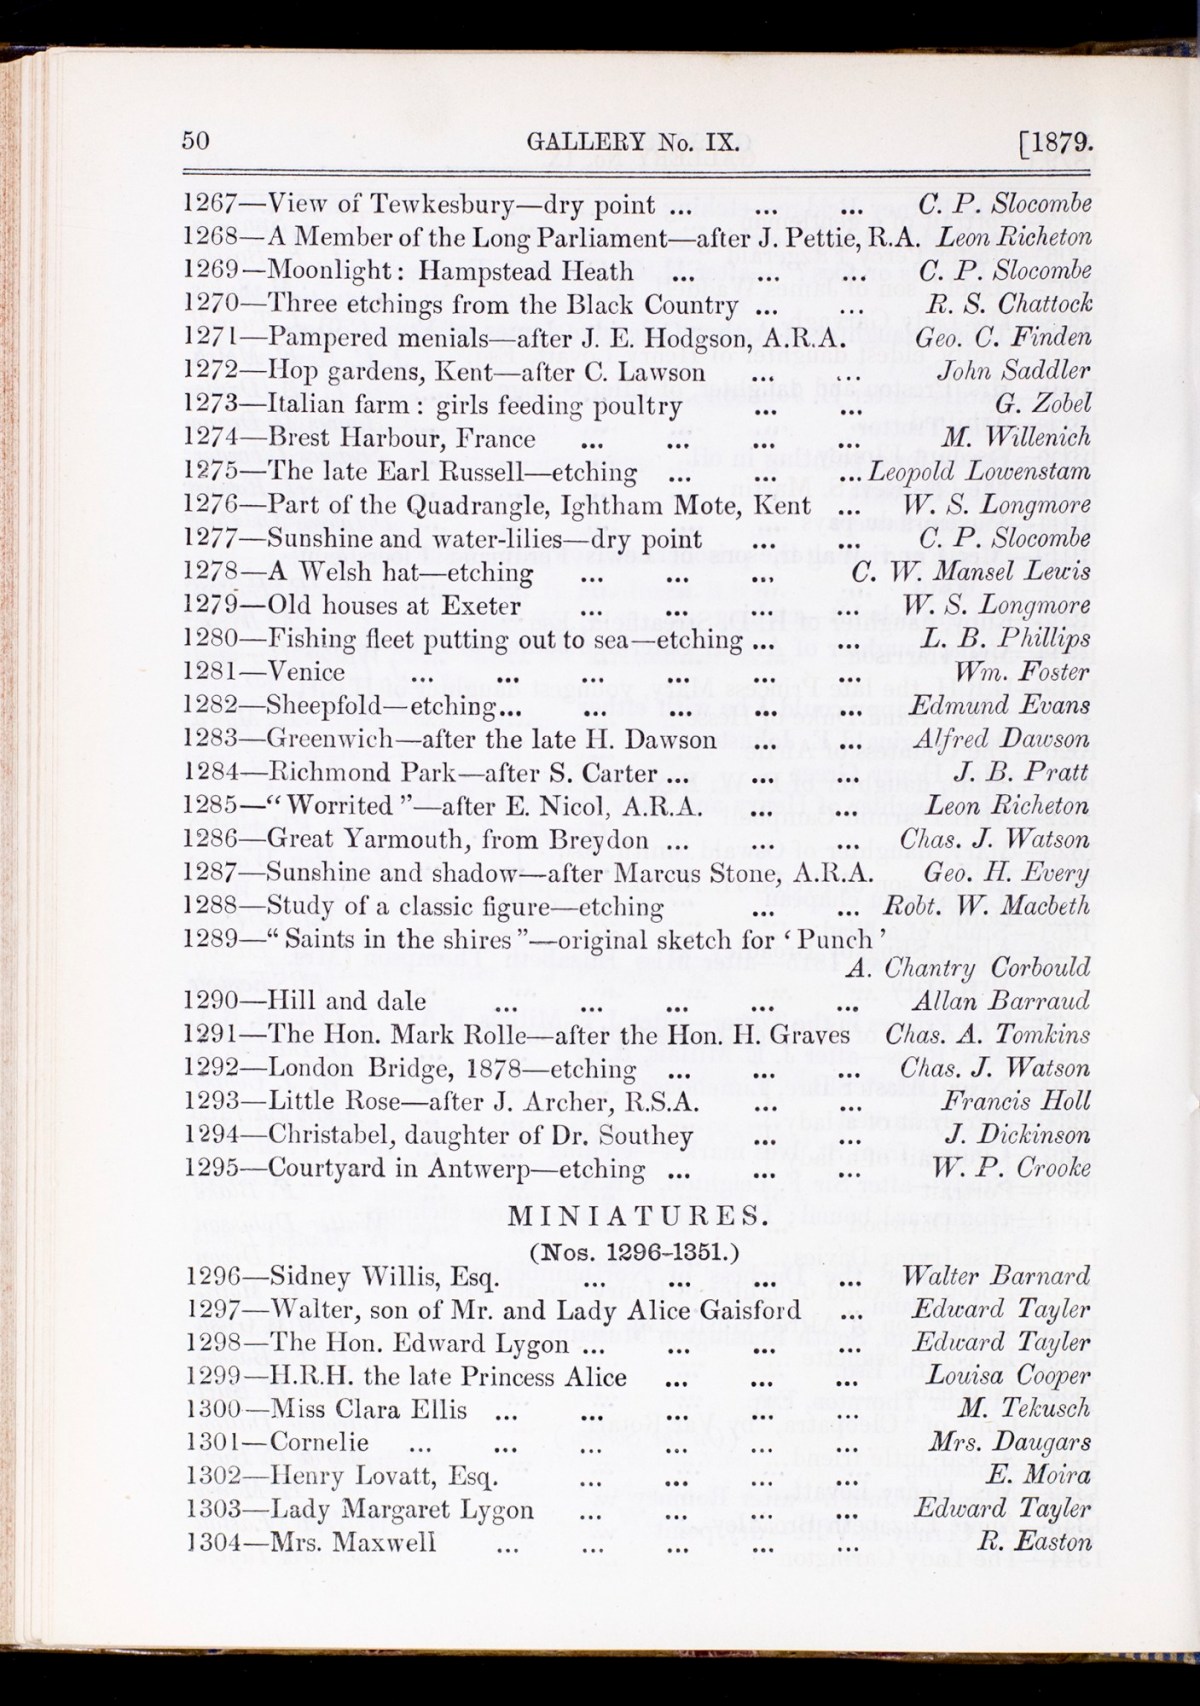 50 GALLERY No. IX. [1879.
1267—View of Tewkesbury—dry point ... ... ... C. P. Slocombe
1268—A Member of the Long Parliament—after J. Pettie, R.A. Leon Richeton
1269—Moonlight: Hampstead Heath ... ... ... C. P. Slocombe
1270—Three etchings from the Black Country ... ... R. S. Chattock
1271—Pampered menials—after J. E. Hodgson, A.R.A. Geo. C. Finden
1272—Hop gardens, Kent—after C. Lawson ... ... John Saddler
1273—Italian farm: girls feeding poultry ... ... G. Zobel
1274—Brest Harbour, France ... ... ... ... M. Willenich
1275—The late Earl Russell—etching ... ... ... Leopold Lowenstam
1276—Part of the Quadrangle, Ightham Mote, Kent ... W. S. Longmore
1277—Sunshine and water-lilies—dry point ... ... C. P. Slocombe
1278—A Welsh hat—etching ... ... ... C. W. Mansel Lewis
1279—Old houses at Exeter ... ... ... ... W. S. Longmore
1280—Fishing fleet putting out to sea—etching ... ... L. B. Phillips
1281—Venice ... ... ... ... ... ... Wm. Foster
1282—Sheepfold—etching... ... ... ... ... Edmund Evans
1283—Greenwich—after the late H. Dawson ... ... Alfred Dawson
1284—Richmond Park—after S. Carter ... ... ... J. B. Pratt
1285—“Worrited”—after E. Nicol, A.R.A. ... ... Leon Richeton
1286—Great Yarmouth, from Breydon ... ... ... Chas. J. Watson
1287—Sunshine and shadow—after Marcus Stone, A.R.A. Geo. H. Every
1288—Study of a classic figure—etching ... ... Robt. W. Macbeth
1289—“Saints in the shires”—original sketch for ‘Punch’
A. Chantry Corbould
1290—Hill and dale ... ... ... ... ... Allan Barraud
1291—The Hon. Mark Rolle—after the Hon. H. Graves Chas. A. Tomkins
1292—London Bridge, 1878—etching ... ... ... Chas. J. Watson
1293—Little Rose—after J. Archer, R.S.A. ... ... Francis Holl
1294—Christabel, daughter of Dr. Southey ... ... J. Dickinson
1295—Courtyard in Antwerp—etching ... ... ... W. P. Crooke
MINIATURES.
(Nos. 1296-1351.)
1296—Sidney Willis, Esq. ... ... ... ... Walter Barnard
1297—Walter, son of Mr. and Lady Alice Gaisford ... Edward Tayler
1298—The Hon. Edward Lygon ... ... ... ... Edward Tayler
1299—H.R.H. the late Princess Alice ... ... ... Louisa Cooper
1300—Miss Clara Ellis ... ... ... ... ... M. Tekusch
1301—Cornelie ... ... ... ... ... ... Mrs. Daugars
1302—Henry Lovatt, Esq. ... ... ... ... E. Moira
1303—Lady Margaret Lygon ... ... ... ... Edward Tayler
1304—Mrs. Maxwell ... ... ... ... ... R. Easton